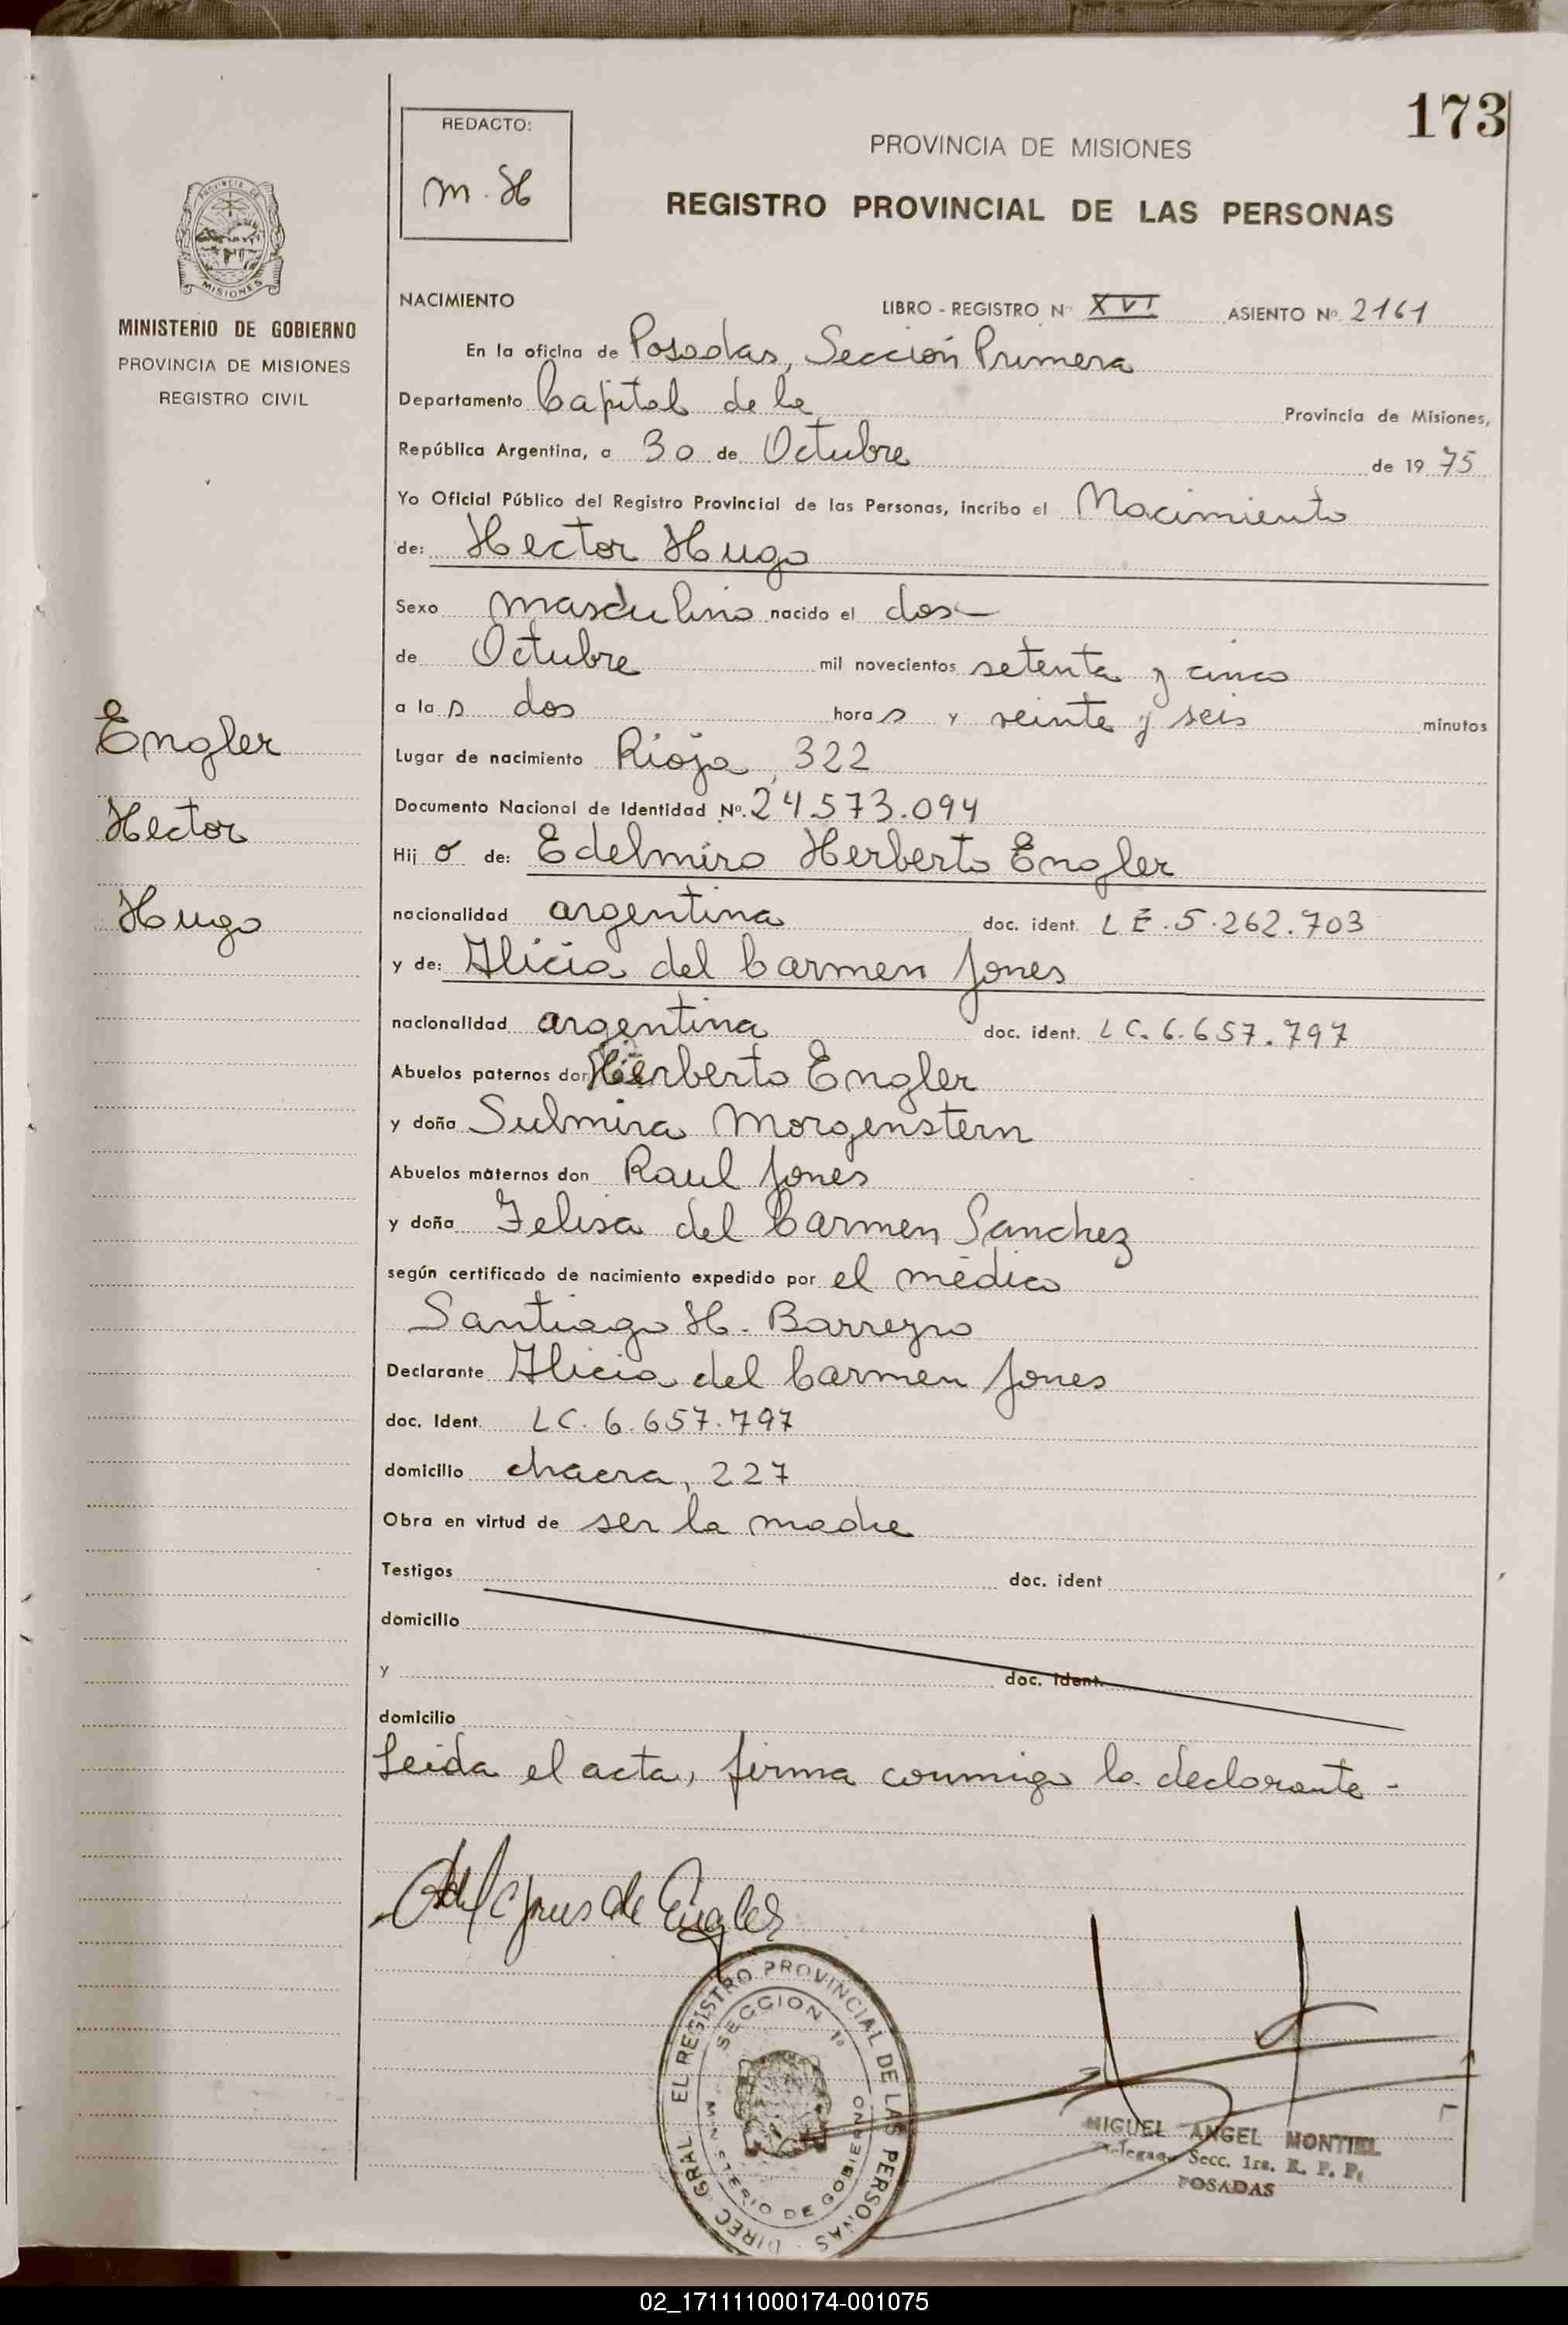 173
REDACTO:
M. H
PROVINCIA DE MISIONES
REGISTRO PROVINCIAL DE LAS PERSONAS
PROVINCIA DE
MISIONES
MINISTERIO DE GOBIERNO
PROVINCIA DE MISIONES
REGISTRO CIVIL
Engler
Hector
Hugo
NACIMIENTO LIBRO - REGISTRO Nº XVI ASIENTO Nº 2161
En la oficina de Posadas, Sección Primera
Departamento Capital de la Provincia de Misiones,
República Argentina, a 30 de Octubre de 19 75
Yo Oficial Público del Registro Provincial de las Personas, incribo el Nacimiento
de: Hector Hugo
Sexo masculino nacido el dos
de Octubre mil novecientos setenta y cinco
a la s dos hora s y veinte y seis minutos
Lugar de nacimiento Rioja, 322
Documento Nacional de Identidad Nº. 24.573.094
Hij o de: Edelmiro Herberto Engler
nacionalidad argentina doc. ident. L E. 5.262.703
y de: Alicia del Carmen Jones
nacionalidad argentina doc. ident. L C. 6.657.797
Abuelos paternos don Herberto Engler
y doña Sulmira Morgenstern
Abuelos maternos don Raul Jones
y doña Felisa del Carmen Sanchez
según certificado de nacimiento expedido por el médico
Santiago H. Barreyro
Declarante Alicia del Carmen Jones
doc. Ident. L C. 6.657.797
domicilio chacra, 227
Obra en virtud de ser la madre
Testigos doc. ident
domicilio
y doc. ident.
domicilio
Leida el acta, firma conmigo la declarante -
de Engler
DIREC. GRAL. EL REGISTRO PROVINCIAL DE LAS PERSONAS
SECCION 1º
MINISTERIO DE GOBIERNO
MIGUEL ANGEL MONTIEL
Delegado Secc. 1ra. R. P. P.
POSADAS
02_171111000174-001075